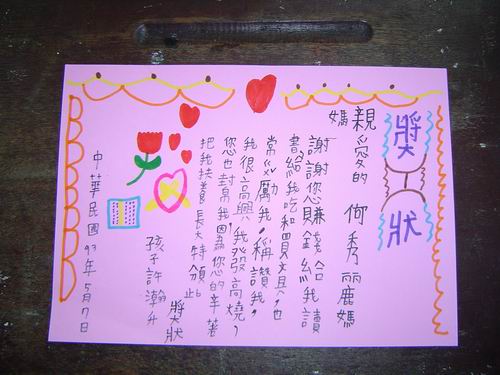 獎狀
親愛的 何秀麗媽
媽
謝謝您賺錢給我讀
書給我吃和買文且,也
常ㄍㄨˇ勵我,稱讚我,
我很高興,我發高燒,
您也幫我,因為您的辛苦
把我扶養長大特頒此
獎狀
孩子許瀚升
中華民國93年5月7日